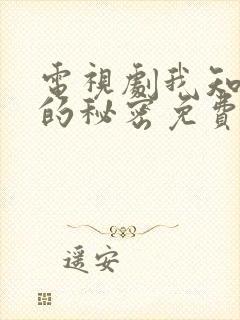 電視劇我知
的秘密免費
遥安